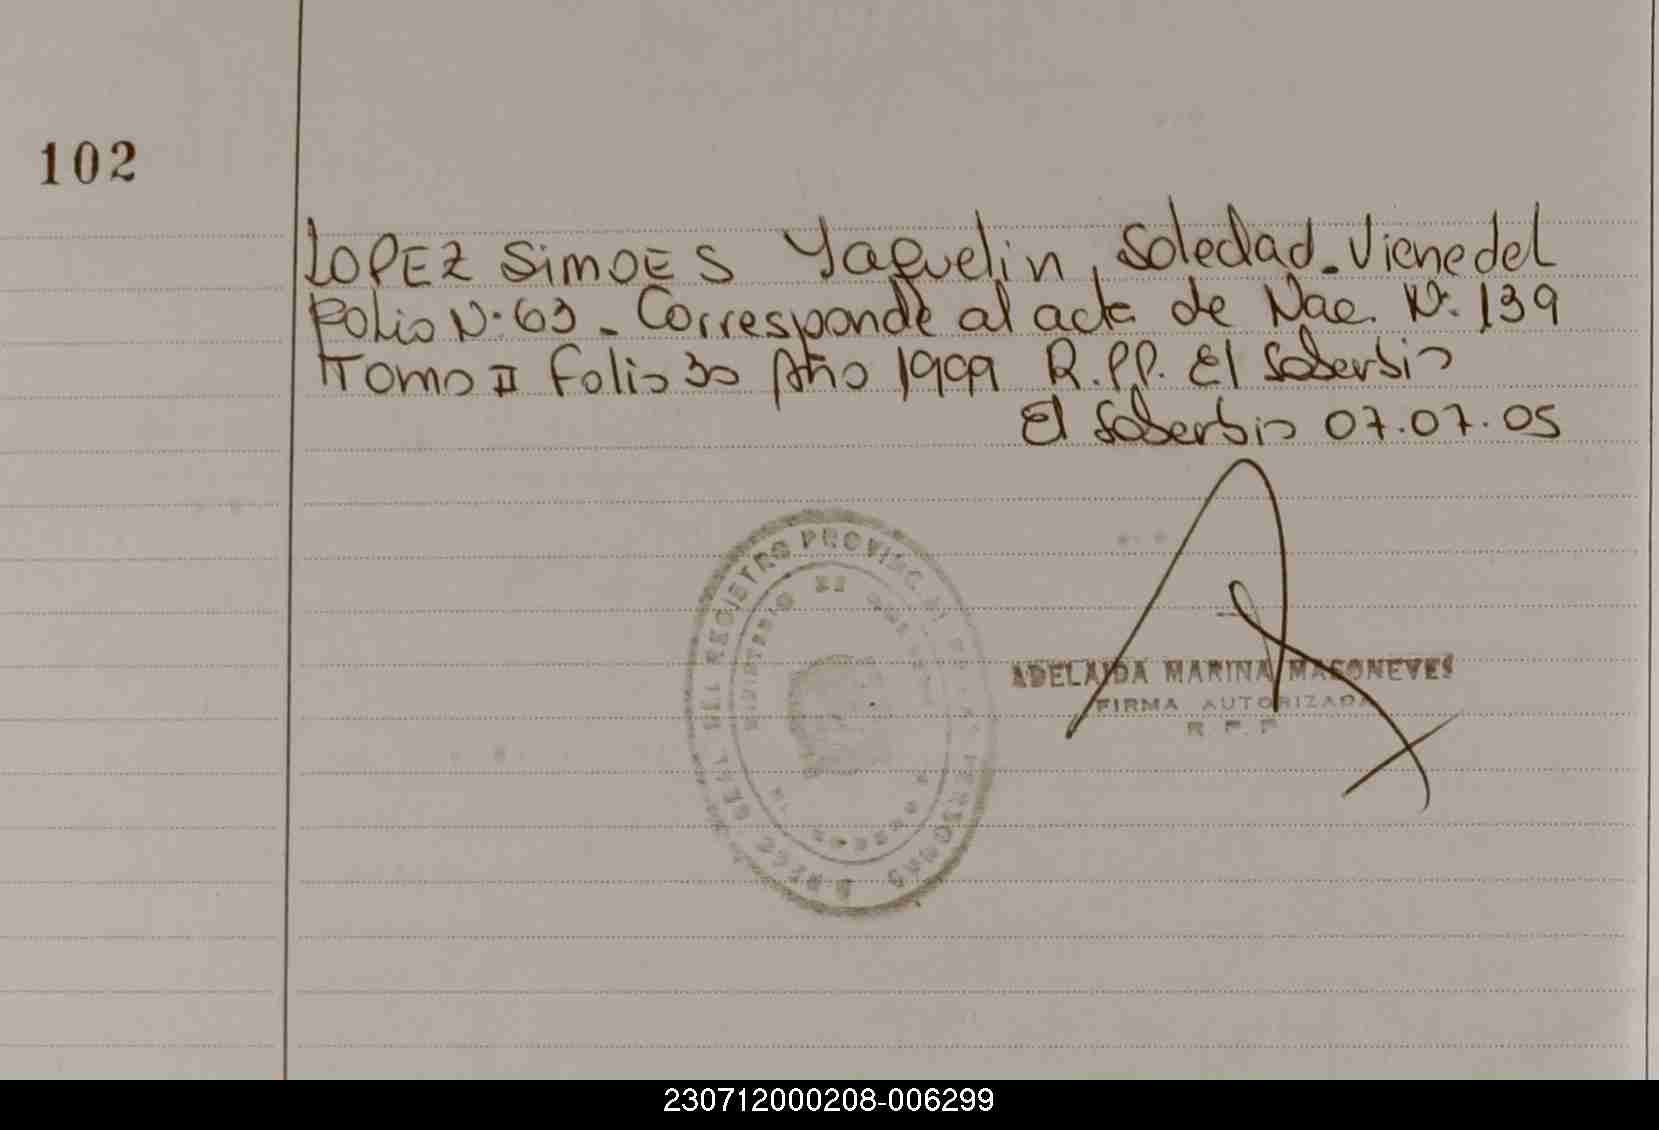 102
LOPEZ SimOES Yaquelin, Soledad. Viene del
Folio N·63. Corresponde al acta de Nac. Nº. 139
Tomo II Folio 30 Año 1999 R.PP. El Soberbio
El Soberbio 07.07.05
DEL REGISTRO PROVINC
MINISTERIO DE
PERSONAS
ADELAIDA MARINA MAGONEVES
FIRMA AUTORIZADA
R P. P
230712000208-006299